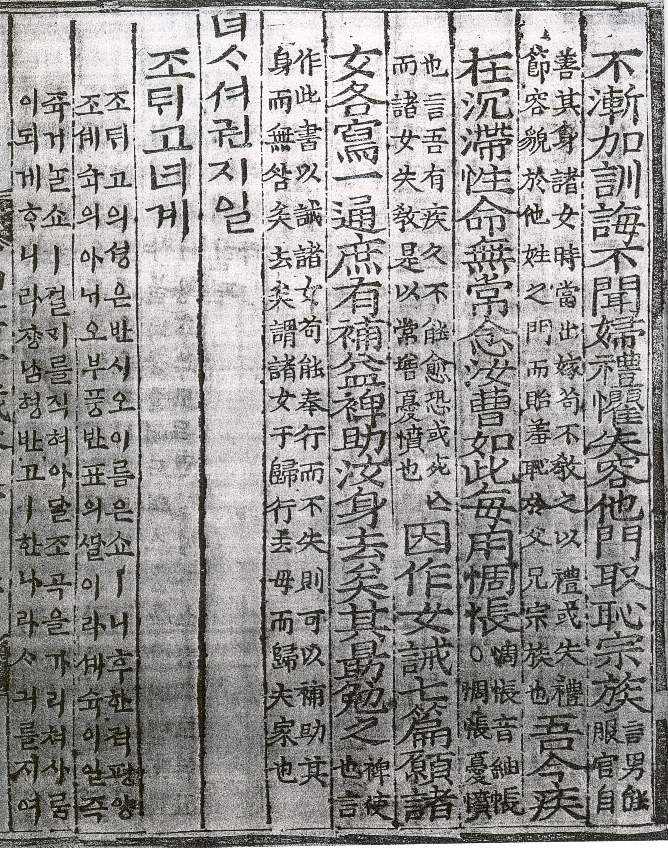 不漸加訓誨不聞婦禮懼失容他門取恥宗族
言男能
服官自
善其身諸女時當出嫁苟不敎之以禮或失禮
節容貌於他姓之門而貽羞恥於父兄宗族也
吾今疾
在沉滯性命無常念汝曹如此每用惆悵○
惆悵音紬帳
惆悵憂憤
也言吾有疾久不能愈恐或死亡
而諸女失敎是以常增憂憤也
因作女誡七篇願諸
女各寫一通庶有補益裨助汝身去矣其勗勉之
裨使
也言
作此書以誡諸女苟能奉行而不失則可以補助其
身而無咎矣去矣謂諸女于歸行去毋而歸夫家也
녀ᄉᆞ셔권지일
조뒤고녀계
조뒤고의셩은반시오이름은쇼ㅣ니후한적평양
조셰슉의아ᄂᆡ오부풍반표의ᄯᆞᆯ이라셰슉이일즉
죽거ᄂᆞᆯ쇼ㅣ졀기를직혀아ᄃᆞᆯ조곡을가ᄅᆞ쳐사ᄅᆞᆷ
이되게ᄒᆞ니라쟝남형반고ㅣ한나라ᄉᆞ긔를지여